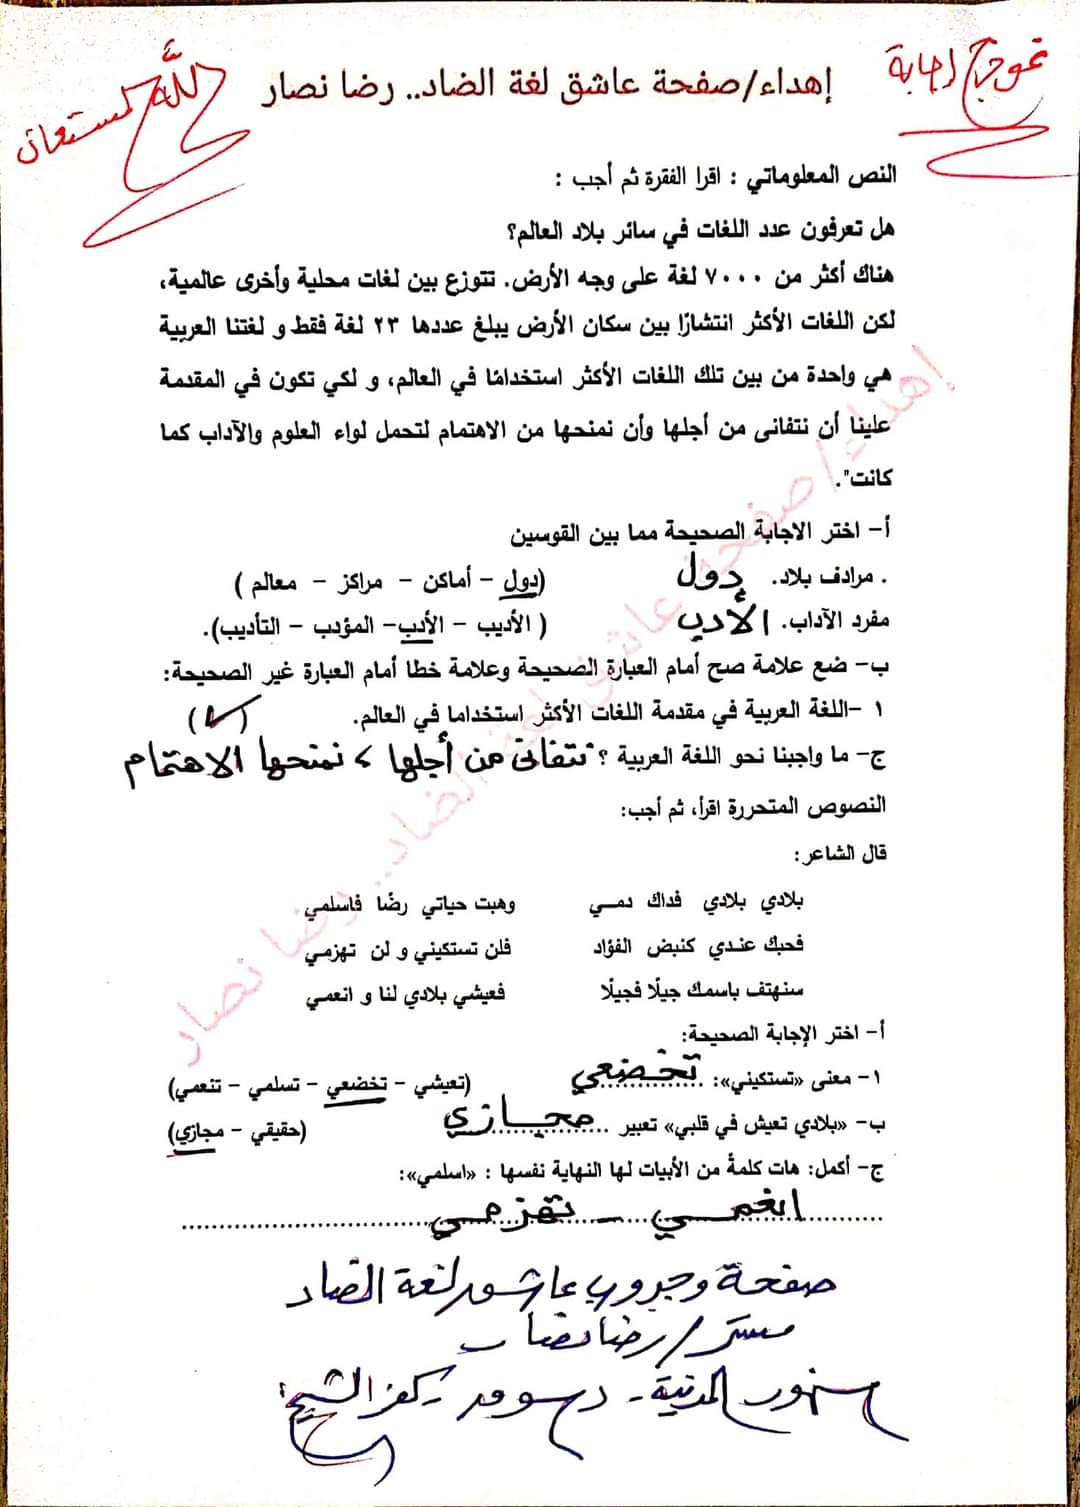 نموذج إجابة
الله المستعان
إهداء/صفحة عاشق لغة الضاد.. رضا نصار
النص المعلوماتي : اقرا الفقرة ثم أجب :
هل تعرفون عدد اللغات في سائر بلاد العالم؟
هناك أكثر من ٧٠٠٠ لغة على وجه الأرض. تتوزع بين لغات محلية وأخرى عالمية،
لكن اللغات الأكثر انتشارًا بين سكان الأرض يبلغ عددها ٢٣ لغة فقط و لغتنا العربية
هي واحدة من بين تلك اللغات الأكثر استخدامًا في العالم، و لكي تكون في المقدمة
علينا أن نتفانى من أجلها وأن نمنحها من الاهتمام لتحمل لواء العلوم والآداب كما
كانت".
أ- اختر الاجابة الصحيحة مما بين القوسين
. مرادف بلاد. دول (دول - أماكن - مراكز - معالم )
مفرد الآداب. الأدب ( الأديب - الأدب- المؤدب - التأديب).
ب- ضع علامة صح أمام العبارة الصحيحة وعلامة خطا أمام العبارة غير الصحيحة:
١ -اللغة العربية في مقدمة اللغات الأكثر استخداما في العالم. (✓)
ج- ما واجبنا نحو اللغة العربية ؟ نتفانى من أجلها ، نمنحها الاهتمام
النصوص المتحررة اقرأ، ثم أجب:
قال الشاعر:
بلادي بلادي فداك دمـي وهبت حياتي رضًا فاسلمي
فحبك عندي كنبض الفؤاد فلن تستكيني و لن تهزمي
سنهتف باسمك جيلًا فجيلًا فعيشي بلادي لنا و انعمي
أ- اختر الإجابة الصحيحة:
١- معنى «تستكيني»: تخضعي (تعيشي - تخضعي - تسلمي - تنعمي)
ب- «بلادي تعيش في قلبي» تعبير مجازي (حقيقي - مجازي)
ج- أكمل: هات كلمةً من الأبيات لها النهاية نفسها : «اسلمي»:
انعمي - تهزمي
صفحة وجروب عاشق لغة الضاد
مستر/ رضا نصار
سنهور المدينة - دسوق - كفر الشيخ
إهداء/صفحة عاشق لغة الضاد.. رضا نصار